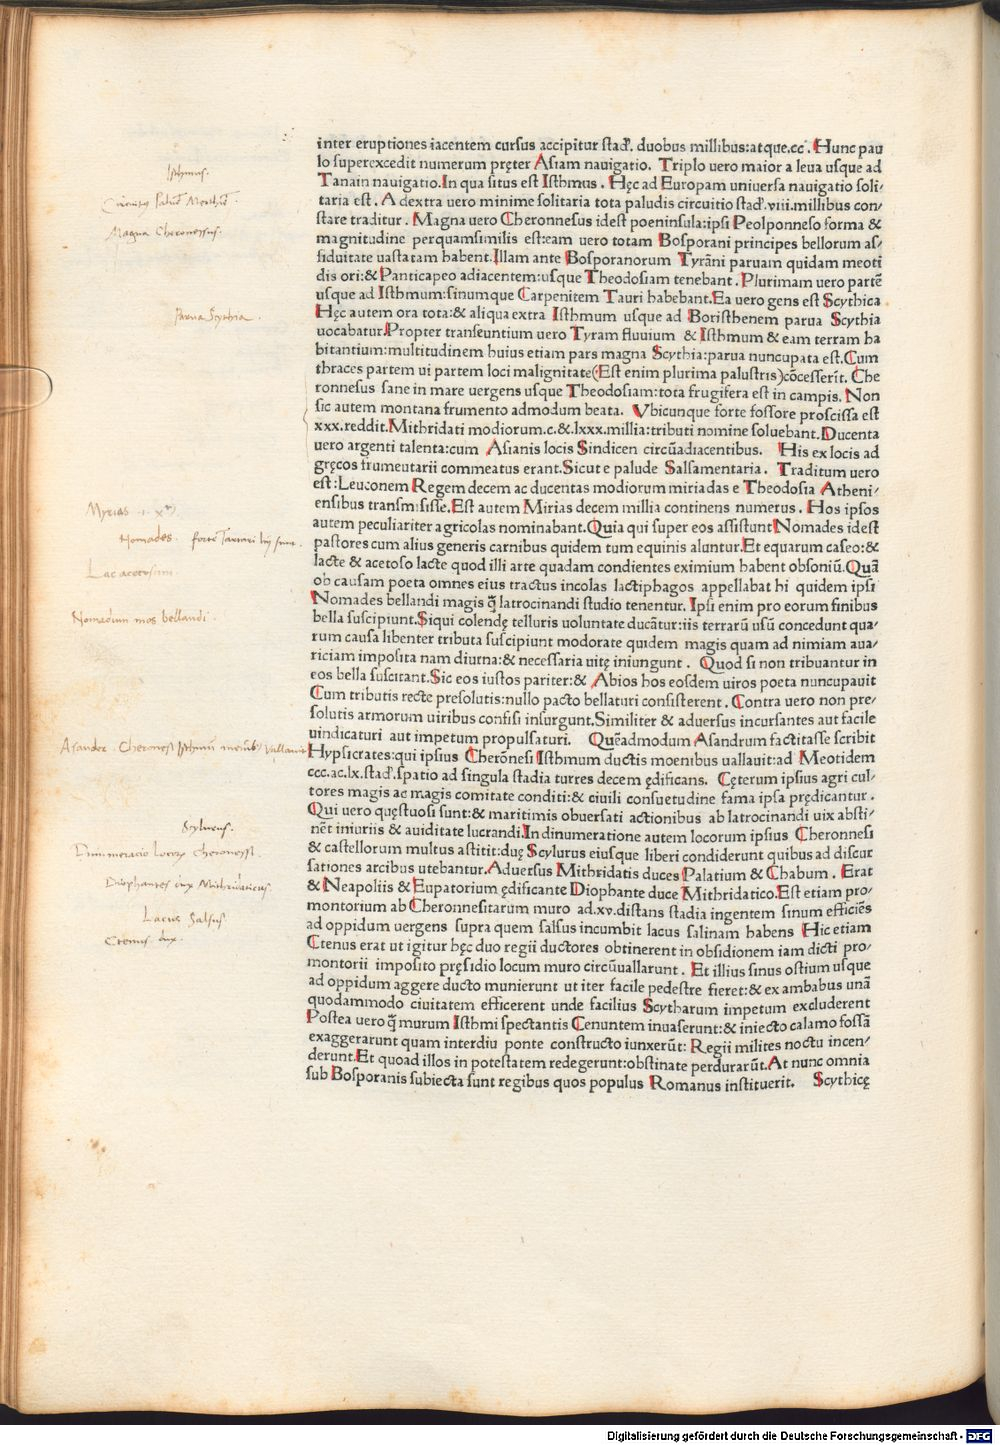 inter eruptiones iacentem cursus accipitur stad᷒. duobus millibus:atque.cc. Hunc pau
lo superexcedit numerum pręter Asiam nauigatio. Triplo uero maior a leua usque ad
Tanain nauigatio.In qua situs est Isthmus. Hęc ad Europam uniuersa nauigatio soli⸗
taria est. A dextra uero minime solitaria tota paludis circuitio stad᷒.viii.millibus con⸗
stare traditur. Magna uero Cheronnesus idest poeninsula:ipsi Peolponneso forma &
magnitudine perquamsimilis est:eam uero totam Bosporani principes bellorum as⸗
siduitate uastatam habent.Illam ante Bosporanorum Tyrāni paruam quidam meoti
dis ori:& Panticapeo adiacentem:usque Theodosiam tenebant. Plurimam uero partē
usque ad Isthmum:sinumque Carpenitem Tauri habebant.Ea uero gens est Scythica
Hęc autem ora tota:& aliqua extra Isthmum usque ad Boristhenem parua Scythia
uocabatur.Propter transeuntium uero Tyram fluuium & Isthmum & eam terram ha
bitantium:multitudinem huius etiam pars magna Scythia:parua nuncupata est.Cum
thraces partem ui partem loci malignitate(Est enim plurima palustris)cōcesserīt. Che
ronnesus sane in mare uergens usque Theodosiam:tota frugifera est in campis. Non
sic autem montana frumento admodum beata. Vbicunque forte fossore proscissa est
xxx.reddit.Mithridati modiorum.c.&.lxxx.millia:tributi nomine soluebant.Ducenta
uero argenti talenta:cum Asianis locis Sindicen circūadiacentibus. His ex locis ad
gręcos frumeutarii commeatus erant.Sicut e palude Salsamentaria. Traditum uero
est:Leuconem Regem decem ac ducentas modiorum miriadas e Theodosia Atheni⸗
ensibus transmisisse.Est autem Mirias decem millia continens numerus. Hos ipsos
autem peculiariter agricolas nominabant.Quia qui super eos assistunt Nomades idest
pastores cum alius generis carnibus quidem tum equinis aluntur.Et equarum caseo:&
lacte & acetoso lacte quod illi arte quadam condientes eximium habent obsoniū.Quā
ob causam poeta omnes eius tractus incolas lactiphagos appellabat hi quidem ipsi
Nomades bellandi magis q̄ latrocinandi studio tenentur. Ipsi enim pro eorum finibus
bella suscipiunt.Siqui colendę telluris uoluntate ducātur:iis terrarū usū concedunt qua⸗
rum causa libenter tributa suscipiunt modorate quidem magis quam ad nimiam aua⸗
riciam imposita nam diurna:& necessaria uitę iniungunt. Quod si non tribuantur in
eos bella suscitant.Sic eos iustos pariter:& Abios hos eosdem uiros poeta nuncupauit
Cum tributis recte presolutis:nullo pacto bellaturi consisterent. Contra uero non pre⸗
solutis armorum uiribus confisi insurgunt.Similiter & aduersus incursantes aut facile
uindicaturi aut impetum propulsaturi. Quēadmodum Asandrum factitasse scribit
Hypsicrates:qui ipsius Cherōnesi Isthmum ductis moenibus uallauit:ad Meotidem
ccc.ac.lx.stad᷒.spatio ad singula stadia turres decem ędificans. Cęterum ipsius agri cul⸗
tores magis ac magis comitate conditi:& ciuili consuetudine fama ipsa prędicantur.
Qui uero quęstuosi sunt:& maritimis obuersati actionibus ab latrocinandi uix absti⸗
nēt iniuriis & auiditate lucrandi.In dinumeratione autem locorum ipsius Cheronnesi
& castellorum multus astitit:duę Scylurus eiusque liberi condiderunt quibus ad discur
sationes arcibus utebantur.Aduersus Mithridatis duces Palatium & Chabum. Erat
& Neapoliis & Eupatorium ędificante Diophante duce Mithridatico.Est etiam pro⸗
montorium ab Cheronnesitarum muro ad.xv.distans stadia ingentem sinum efficiēs
ad oppidum uergens supra quem salsus incumbit lacus salinam habens Hic etiam
Ctenus erat ut igitur hęc duo regii ductores obtinerent in obsidionem iam dicti pro⸗
montorii imposito pręsidio locum muro circūuallarunt. Et illius sinus ostium usque
ad oppidum aggere ducto munierunt ut iter facile pedestre fieret:& ex ambabus unā
quodammodo ciuitatem efficerent unde facilius Scytharum impetum excluderent
Postea uero q̄ murum Isthmi spectantis Cenuntem inuaserunt:& iniecto calamo fossā
exaggerarunt quam interdiu ponte constructo iunxerūt: Regii milites noctu incen⸗
derunt.Et quoad illos in potestatem redegerunt:obstinate perdurarūt.At nunc omnia
sub Bosporanis subiecta sunt regibus quos populus Romanus instituerit. Scythicę
Isthmus.
Magna Cheronessus.
Parua Scythia.
Myrias .i. xᵐ
Nomades. forte Tartari hij sunt.
Lac acetosum.
Nomadum mos bellandi.
Asander. Cheronesi Isthmū menibᵒ vallauit
Scylurus.
Dinumeracio locorꝝ Cheronessi.
Diophantes dux Mithridaticus.
Lacus Salsus.
Ctenus dux.
Digitalisierung gefördert durch die Deutsche Forschungsgemeinschaft - DFG